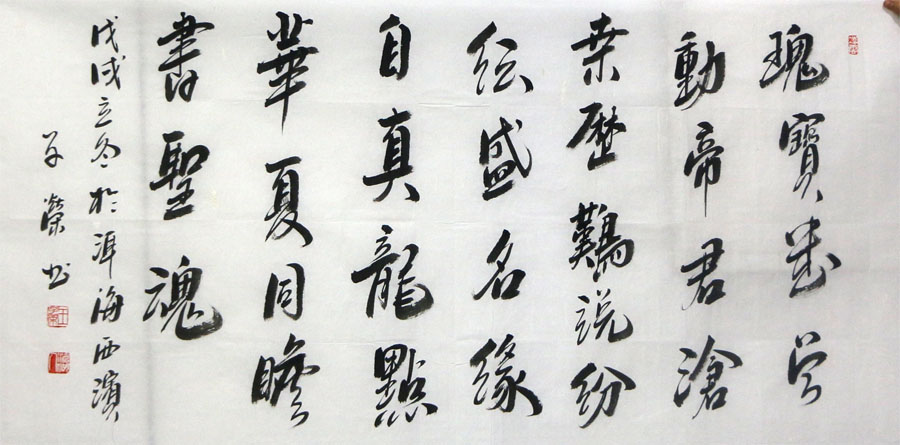 瑰寶
動帝君滄
桒歷難説紛
紜盛名緣
自真龍點
華夏同瞻
書聖魂
戊戌立冬於洱海西濱
榮书